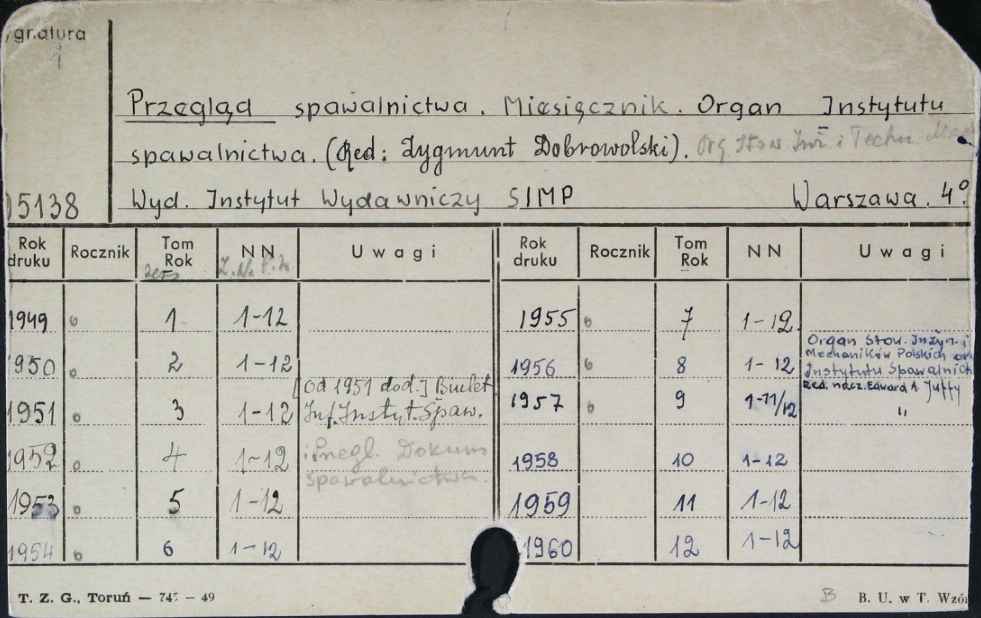 gnatura
Przegląd spawalnictwa. Miesięcznik. Organ Instytutu
spawalnictwa. (Red: Zygmunt Dobrowolski). Org Stow Inż i Techn
05138 Wyd. Instytut Wydawniczy SIMP Warszawa. 4º
Rok druku Rocznik Tom Rok NN Uwagi Rok druku Rocznik Tom Rok NN Uwagi
zesz
1949 o 1 1-12 1955 o 7 1-12
Organ Stow. Inżyn. i
Mechaników Polskich oraz
1950 o 2 1-12 1956 o 8 1-12 Instytutu Spawalnict
[od 1951 dod.] Biulet Red. nacz. Edward A. Juffy
1951 o 3 1-12 Inf. Instyt. Spaw. 1957 o 9 1-11/12 "
1952 o 4 1-12 i Przegl. Dokum 1958 10 1-12
spawalnictwa.
1953 o 5 1-12 1959 11 1-12
1954 o 6 1-12 1960 12 1-12
T. Z. G., Toruń — 747 — 49 B B. U. w T. Wzór